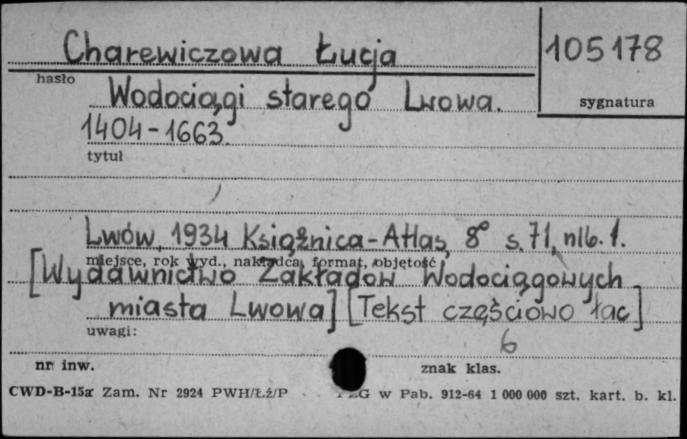 Charewiczowa Łucja
105178
hasło
Wodociągi starego Lwowa.
sygnatura
1404-1663.
tytuł
Lwów, 1934 Książnica-Atlas, 8° s. 71, nlb. 1.
miejsce, rok wyd., nakładca, format, objętość
[Wydawnictwo Zakładów Wodociągowych
miasta Lwowa] [Tekst częściowo łac]
uwagi:
6
nr inw.
znak klas.
CWD-B-15a Zam. Nr 2924 PWH/Łź/P
w Pab. 912-64 1 000 000 szt. kart. b. kl.